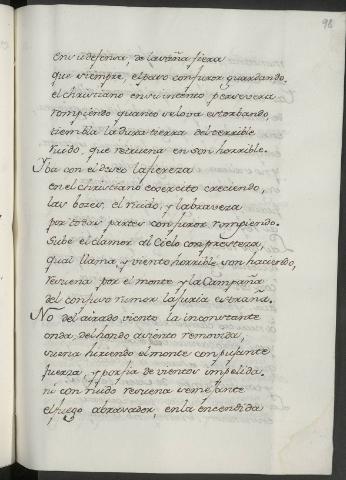 98
en su defensa, de la saña fiera
que siempre, el paso con furor guardando,
el christiano en su intento persevera
rompiendo quanto se lo va estorbando,
tiembla la dura tierra del terrible
ruido, que retuena en son horrible.
Yba con el deseo la fiereza
en el christiano exercito creciendo,
las bozes, el ruido, y la braveza
por todas partes con furor rompiendo.
Sube el clamor al Cielo con presteza,
qual llama, y viento horrible son haciendo,
resuena por el monte y la Campaña
del confuso rumor la furia estraña.
No del airado viento la inconstante
onda, del hondo asiento removida,
suena hiriendo el monte con pujante
fuerza, y porfia de vientos impelida.
ni con ruido resuena semejante
el fuego abrasador, en la encendida